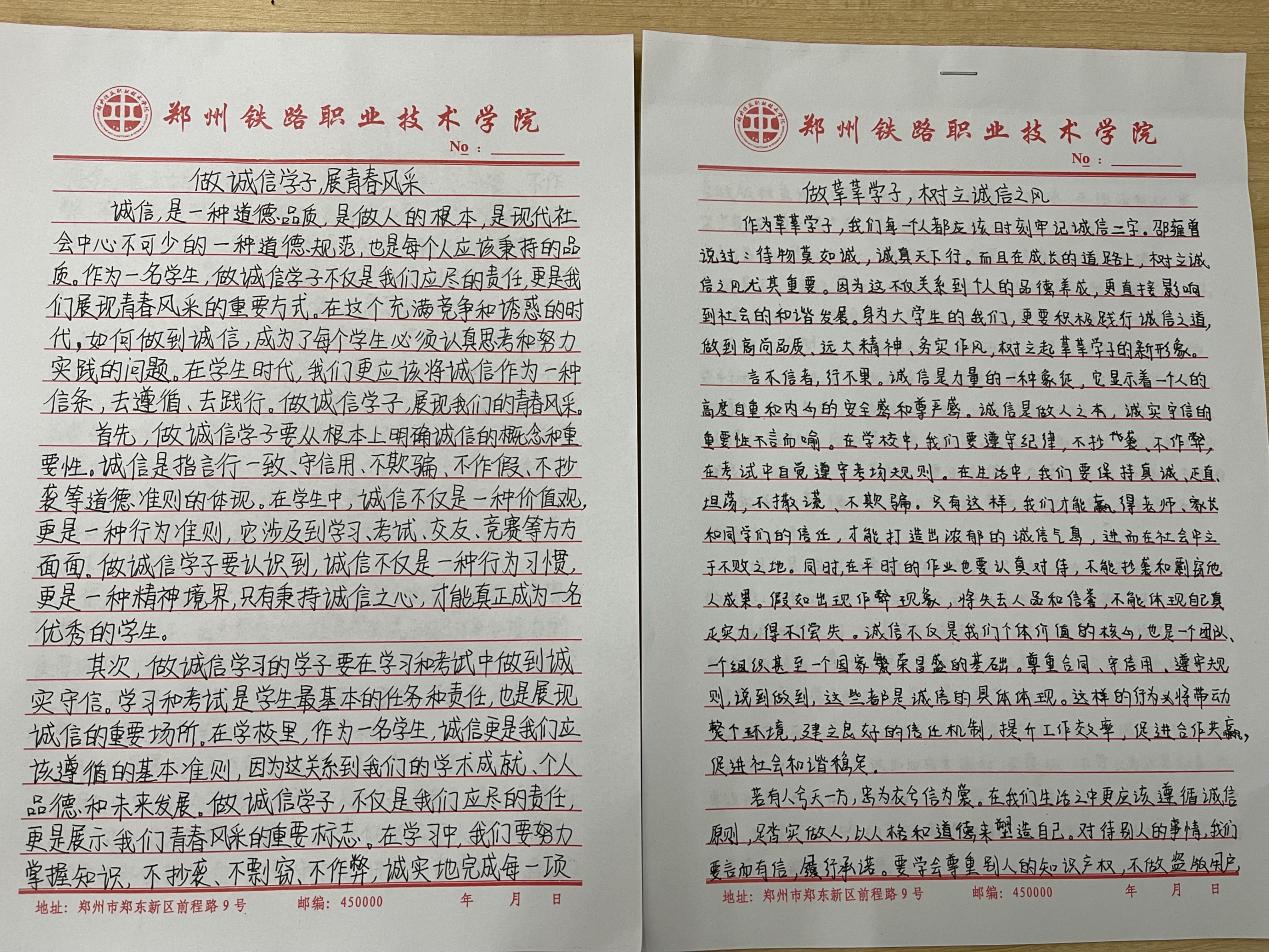 郑州铁路职业技术学院
No：
做诚信学子,展青春风采
诚信,是一种道德品质,是做人的根本,是现代社
会中必不可少的一种道德规范,也是每个人应该秉持的品
质。作为一名学生,做诚信学子不仅是我们应尽的责任,更是我
们展现青春风采的重要方式。在这个充满竞争和诱惑的时
代,如何做到诚信,成为了每个学生必须认真思考和努力
实践的问题。在学生时代,我们更应该将诚信作为一种
信条,去遵循、去践行。做诚信学子,展现我们的青春风采。
首先,做诚信学子要从根本上明确诚信的概念和重
要性。诚信是指言行一致、守信用、不欺骗、不作假、不抄
袭等道德准则的体现。在学生中,诚信不仅是一种价值观,
更是一种行为准则,它涉及到学习、考试、交友、竞赛等方方
面面。做诚信学子要认识到,诚信不仅是一种行为习惯,
更是一种精神境界,只有秉持诚信之心,才能真正成为一名
优秀的学生。
其次,做诚信学习的学子要在学习和考试中做到诚
实守信。学习和考试是学生最基本的任务和责任,也是展现
诚信的重要场所。在学校里,作为一名学生,诚信更是我们应
该遵循的基本准则,因为这关系到我们的学术成就、个人
品德和未来发展。做诚信学子,不仅是我们应尽的责任,
更是展示我们青春风采的重要标志。在学习中,我们要努力
掌握知识,不抄袭、不剽窃、不作弊,诚实地完成每一项
地址：郑州市郑东新区前程路9号 邮编：450000 年 月 日
郑州铁路职业技术学院
No：
做莘莘学子,树立诚信之风
作为莘莘学子,我们每一个人都应该时刻牢记诚信二字。邵雍曾
说过：待物莫如诚,诚真天下行。而且在成长的道路上,树立诚
信之风尤其重要。因为这不仅关系到个人的品德养成,更直接影响
到社会的和谐发展。身为大学生的我们,更要积极践行诚信之道,
做到高尚品质、远大精神、务实作风,树立起莘莘学子的新形象。
言不信者,行不果。诚信是力量的一种象征,它显示着一个人的
高度自重和内心的安全感和尊严感。诚信是做人之本,诚实守信的
重要性不言而喻。在学校中,我们要遵守纪律,不抄袭、不作弊,
在考试中自觉遵守考场规则。在生活中,我们要保持真诚、正直、
坦荡,不撒谎、不欺骗。只有这样,我们才能赢得老师、家长
和同学们的信任,才能打造出浓郁的诚信气息,进而在社会中立
于不败之地。同时,在平时的作业也要认真对待,不能抄袭和剽窃他
人成果。假如出现作弊现象,将失去人品和信誉,不能体现自己真
正实力,得不偿失。诚信不仅是我们个体价值的核心,也是一个团队、
一个组织甚至一个国家繁荣昌盛的基础。尊重合同、守信用、遵守规
则,说到做到,这些都是诚信的具体体现。这样的行为必将带动
整个环境,建立良好的信任机制,提升工作效率,促进合作共赢,
促进社会和谐稳定。
若有人兮天一方,忠为衣兮信为裳。在我们生活之中更应该遵循诚信
原则,踏实做人,以人格和道德来塑造自己。对待别人的事情,我们
要言而有信,履行承诺。要学会尊重别人的知识产权,不做盗版用户,
地址：郑州市郑东新区前程路9号 邮编：450000 年 月 日